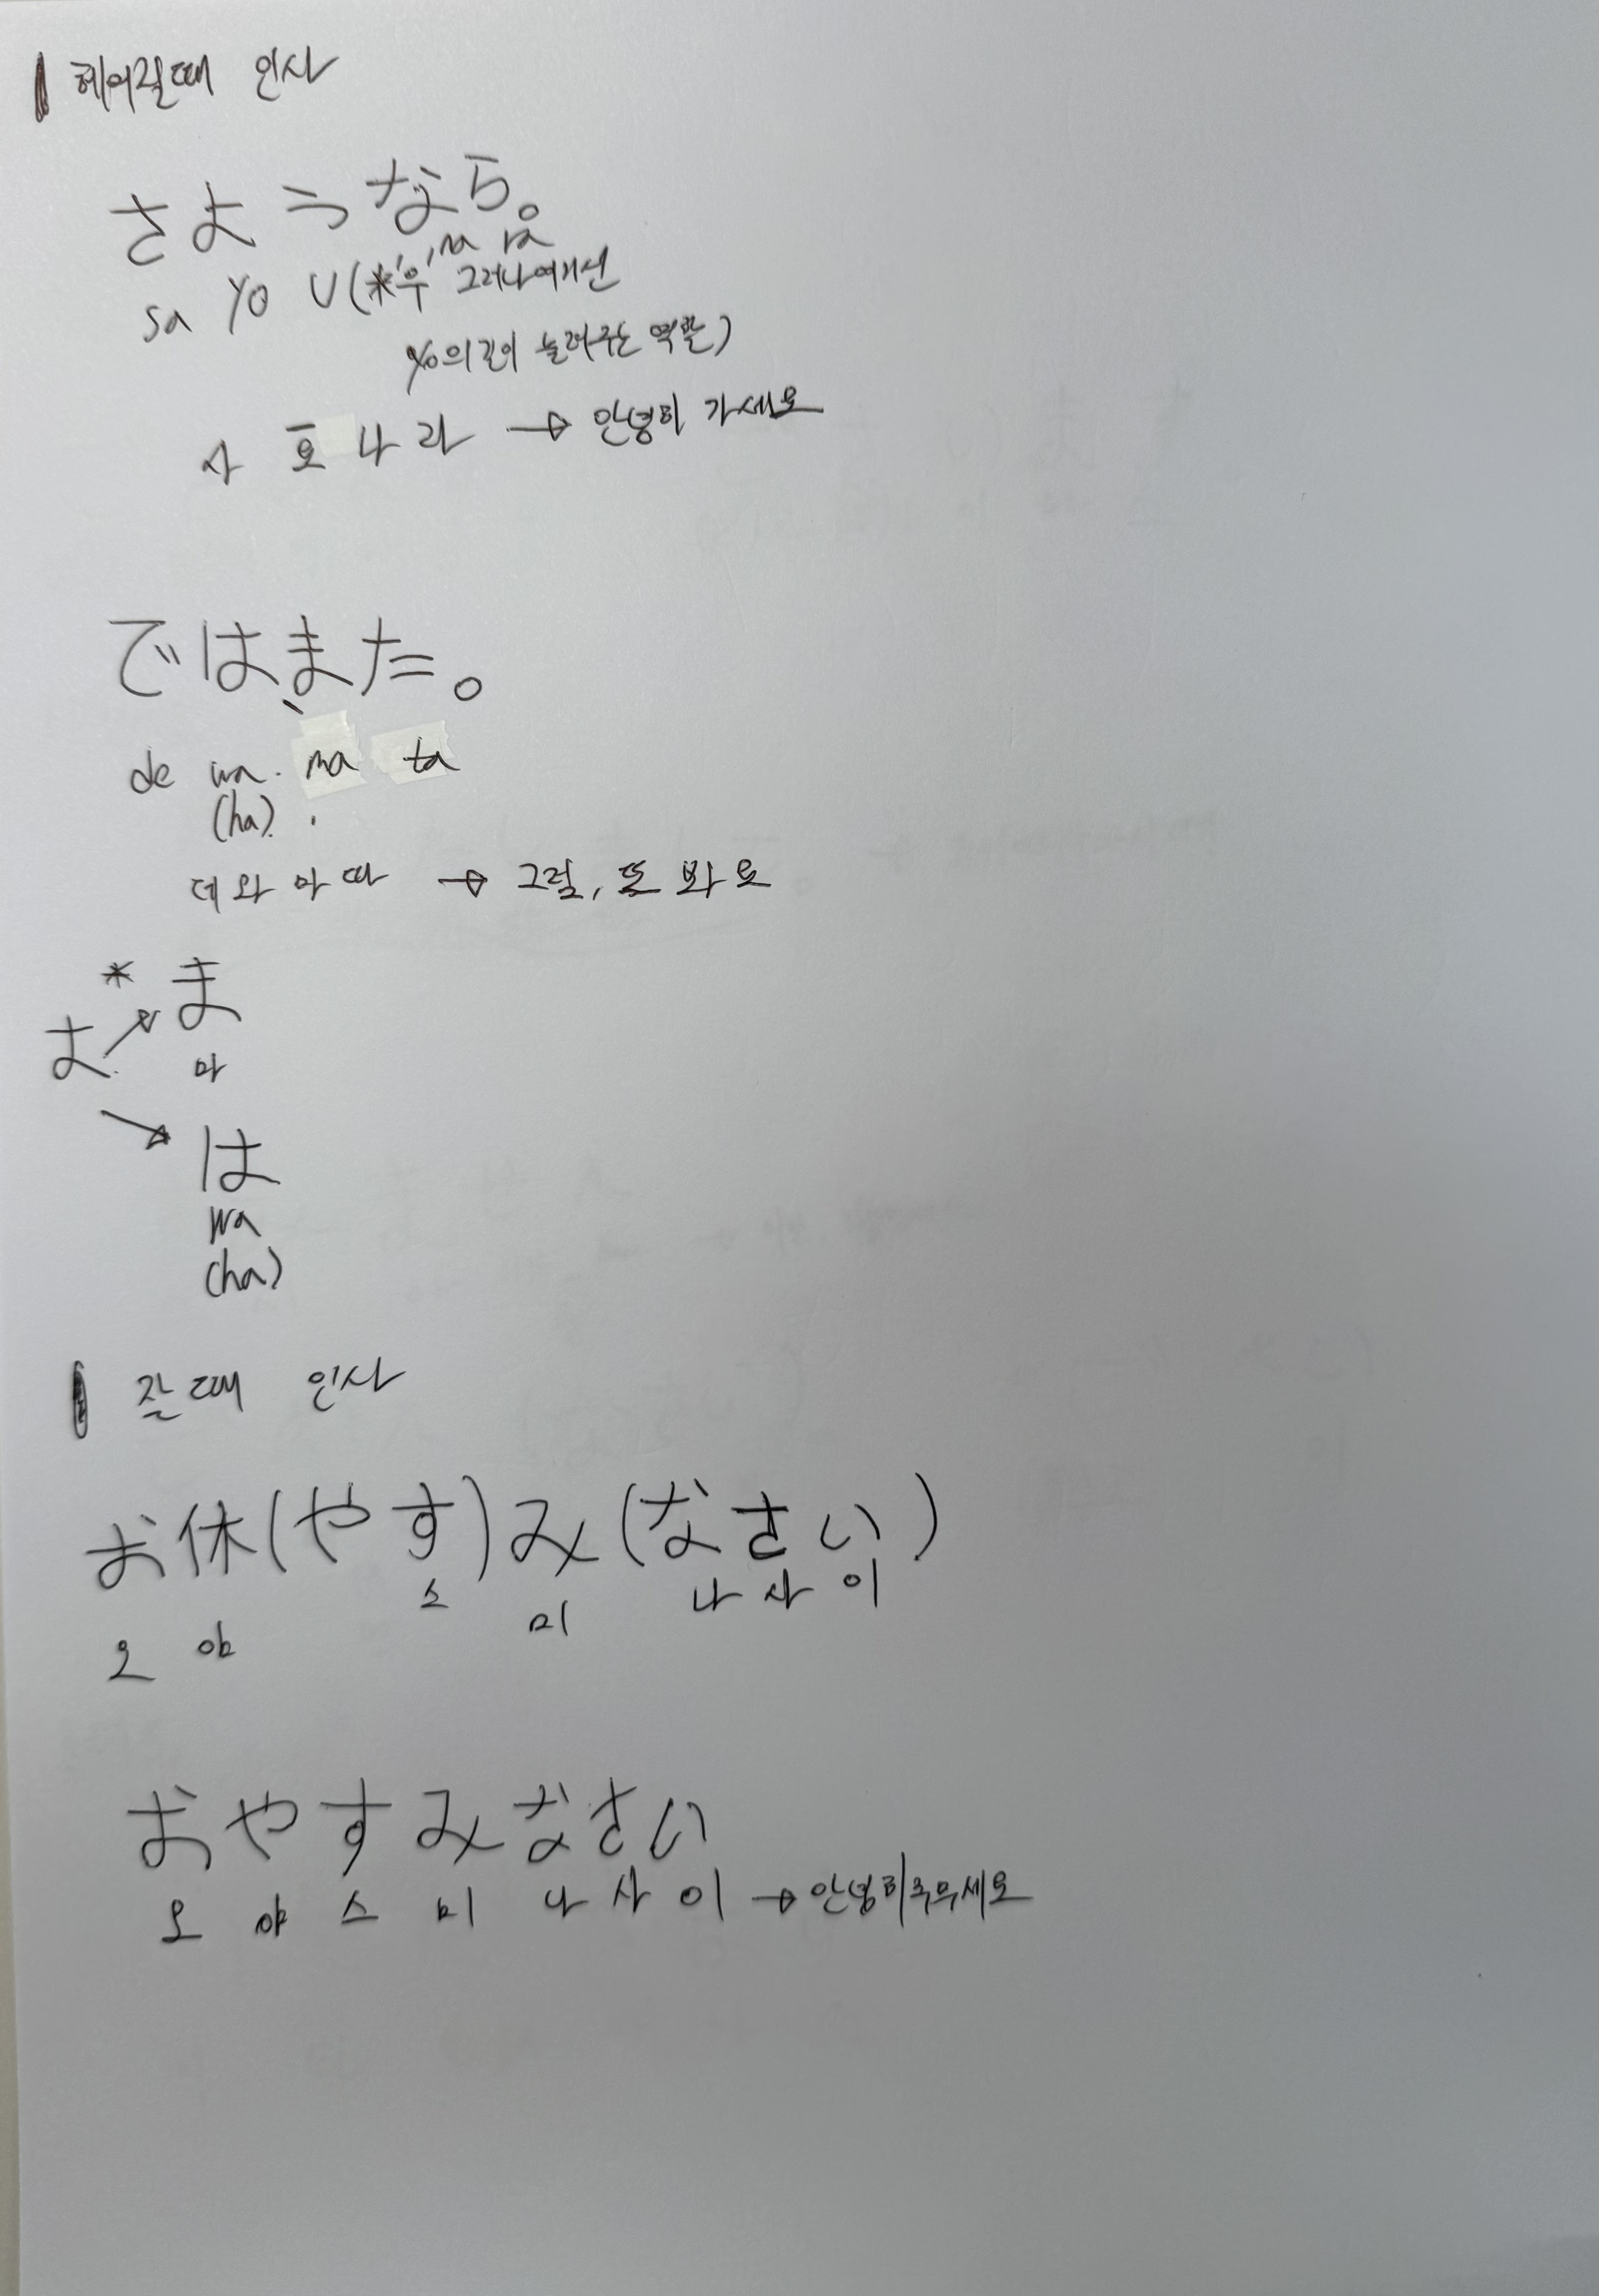 헤어질때 인사
さようなら。
na ra
sa yo U(*'우' 그러나여기선
yo의길이 늘려주는 역할)
사 요 나 라 → 안녕히 가세요
では、また。
de wa. ma ta
(ha).
데 와 마 따 → 그럼, 또 봐요
* ま
よ 마
は
wa
(ha)
잘때 인사
お休(やすう)み(なさい)
스 미 나 사 이
오 야
おやすみなさい
오 야 스 미 나 사 이 → 안녕히주무세요